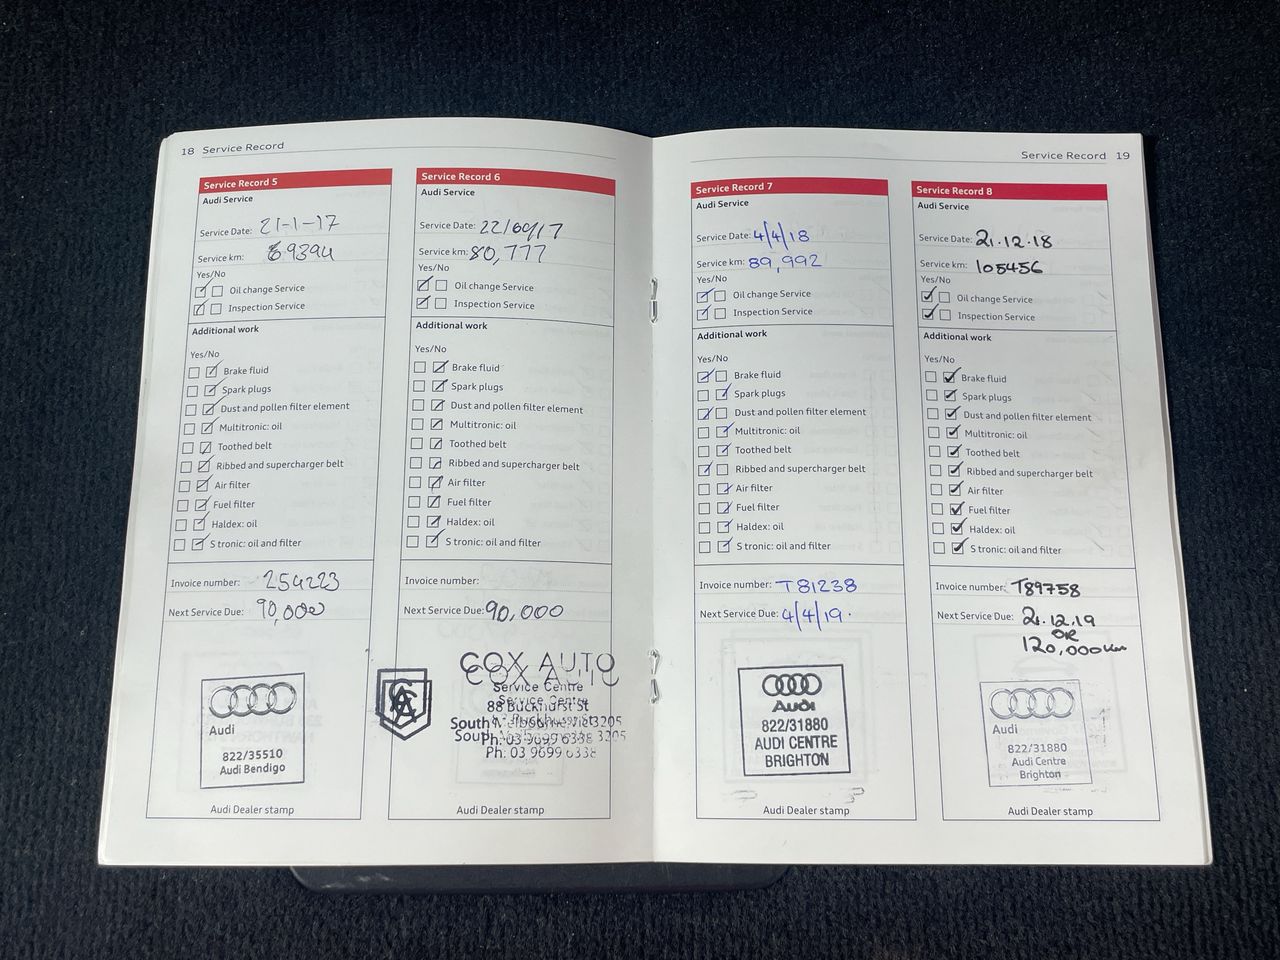 18 Service Record
Service Record 5
Audi Service
Service Date: 21-1-17
Service km: 69394
Yes/No
Oil change Service
Inspection Service
Additional work
Yes/No
Brake fluid
Spark plugs
Dust and pollen filter element
Multitronic: oil
Toothed belt
Ribbed and supercharger belt
Air filter
Fuel filter
Haldex: oil
S tronic: oil and filter
Invoice number: 254223
Next Service Due: 90,000
Audi
822/35510
Audi Bendigo
Audi Dealer stamp
Service Record 6
Audi Service
Service Date: 22/09/17
Service km: 80,777
Yes/No
Oil change Service
Inspection Service
Additional work
Yes/No
Brake fluid
Spark plugs
Dust and pollen filter element
Multitronic: oil
Toothed belt
Ribbed and supercharger belt
Air filter
Fuel filter
Haldex: oil
S tronic: oil and filter
Invoice number:
Next Service Due: 90,000
COX AUTO
Service Centre
88 Buckhurst St
South Melbourne Vic 3205
Ph: 03 9699 6338
Audi Dealer stamp
Service Record 19
Service Record 7
Audi Service
Service Date: 4/4/18
Service km: 89,992
Yes/No
Oil change Service
Inspection Service
Additional work
Yes/No
Brake fluid
Spark plugs
Dust and pollen filter element
Multitronic: oil
Toothed belt
Ribbed and supercharger belt
Air filter
Fuel filter
Haldex: oil
S tronic: oil and filter
Invoice number: T81238
Next Service Due: 4/4/19.
Audi
822/31880
AUDI CENTRE
BRIGHTON
Audi Dealer stamp
Service Record 8
Audi Service
Service Date: 21.12.18
Service km: 105456
Yes/No
Oil change Service
Inspection Service
Additional work
Yes/No
Brake fluid
Spark plugs
Dust and pollen filter element
Multitronic: oil
Toothed belt
Ribbed and supercharger belt
Air filter
Fuel filter
Haldex: oil
S tronic: oil and filter
Invoice number: T89758
Next Service Due: 21.12.19
OR
120,000km
Audi
822/31880
Audi Centre
Brighton
Audi Dealer stamp